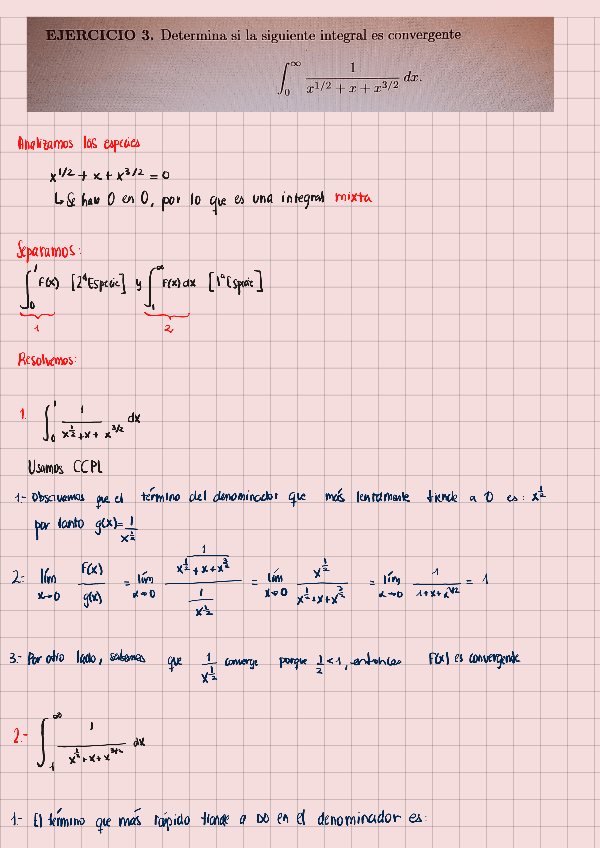 EJERCICIO 3. Determina si la siguiente integral es convergente
∫_0^∞ 1/(x^{1/2} + x + x^{3/2}) dx.
Analizamos las especies
x^{1/2} + x + x^{3/2} = 0
↳ Se hace 0 en 0, por lo que es una integral mixta
Separamos:
∫_0^1 F(x) [2ª Especie] y ∫_1^∞ F(x) dx [1ª Especie]
1 2
Resolvemos:
1. ∫_0^1 1/(x^{1/2} + x + x^{3/2}) dx
Usamos CCPL
1- Observamos que el término del denominador que más lentamente tiende a 0 es: x^{1/2}
por tanto g(x) = 1/x^{1/2}
2- lím_{x→0} F(x)/g(x) = lím_{x→0} (1/(x^{1/2} + x + x^{3/2}))/(1/x^{1/2}) = lím_{x→0} x^{1/2}/(x^{1/2} + x + x^{3/2}) = lím_{x→0} 1/(1 + x + x^{1/2}) = 1
3.- Por otro lado, sabemos que 1/x^{1/2} converge porque 1/2 < 1, entonces F(x) es convergente
2.- ∫_1^∞ 1/(x^{1/2} + x + x^{3/2}) dx
1- El término que más rápido tiende a ∞ en el denominador es: